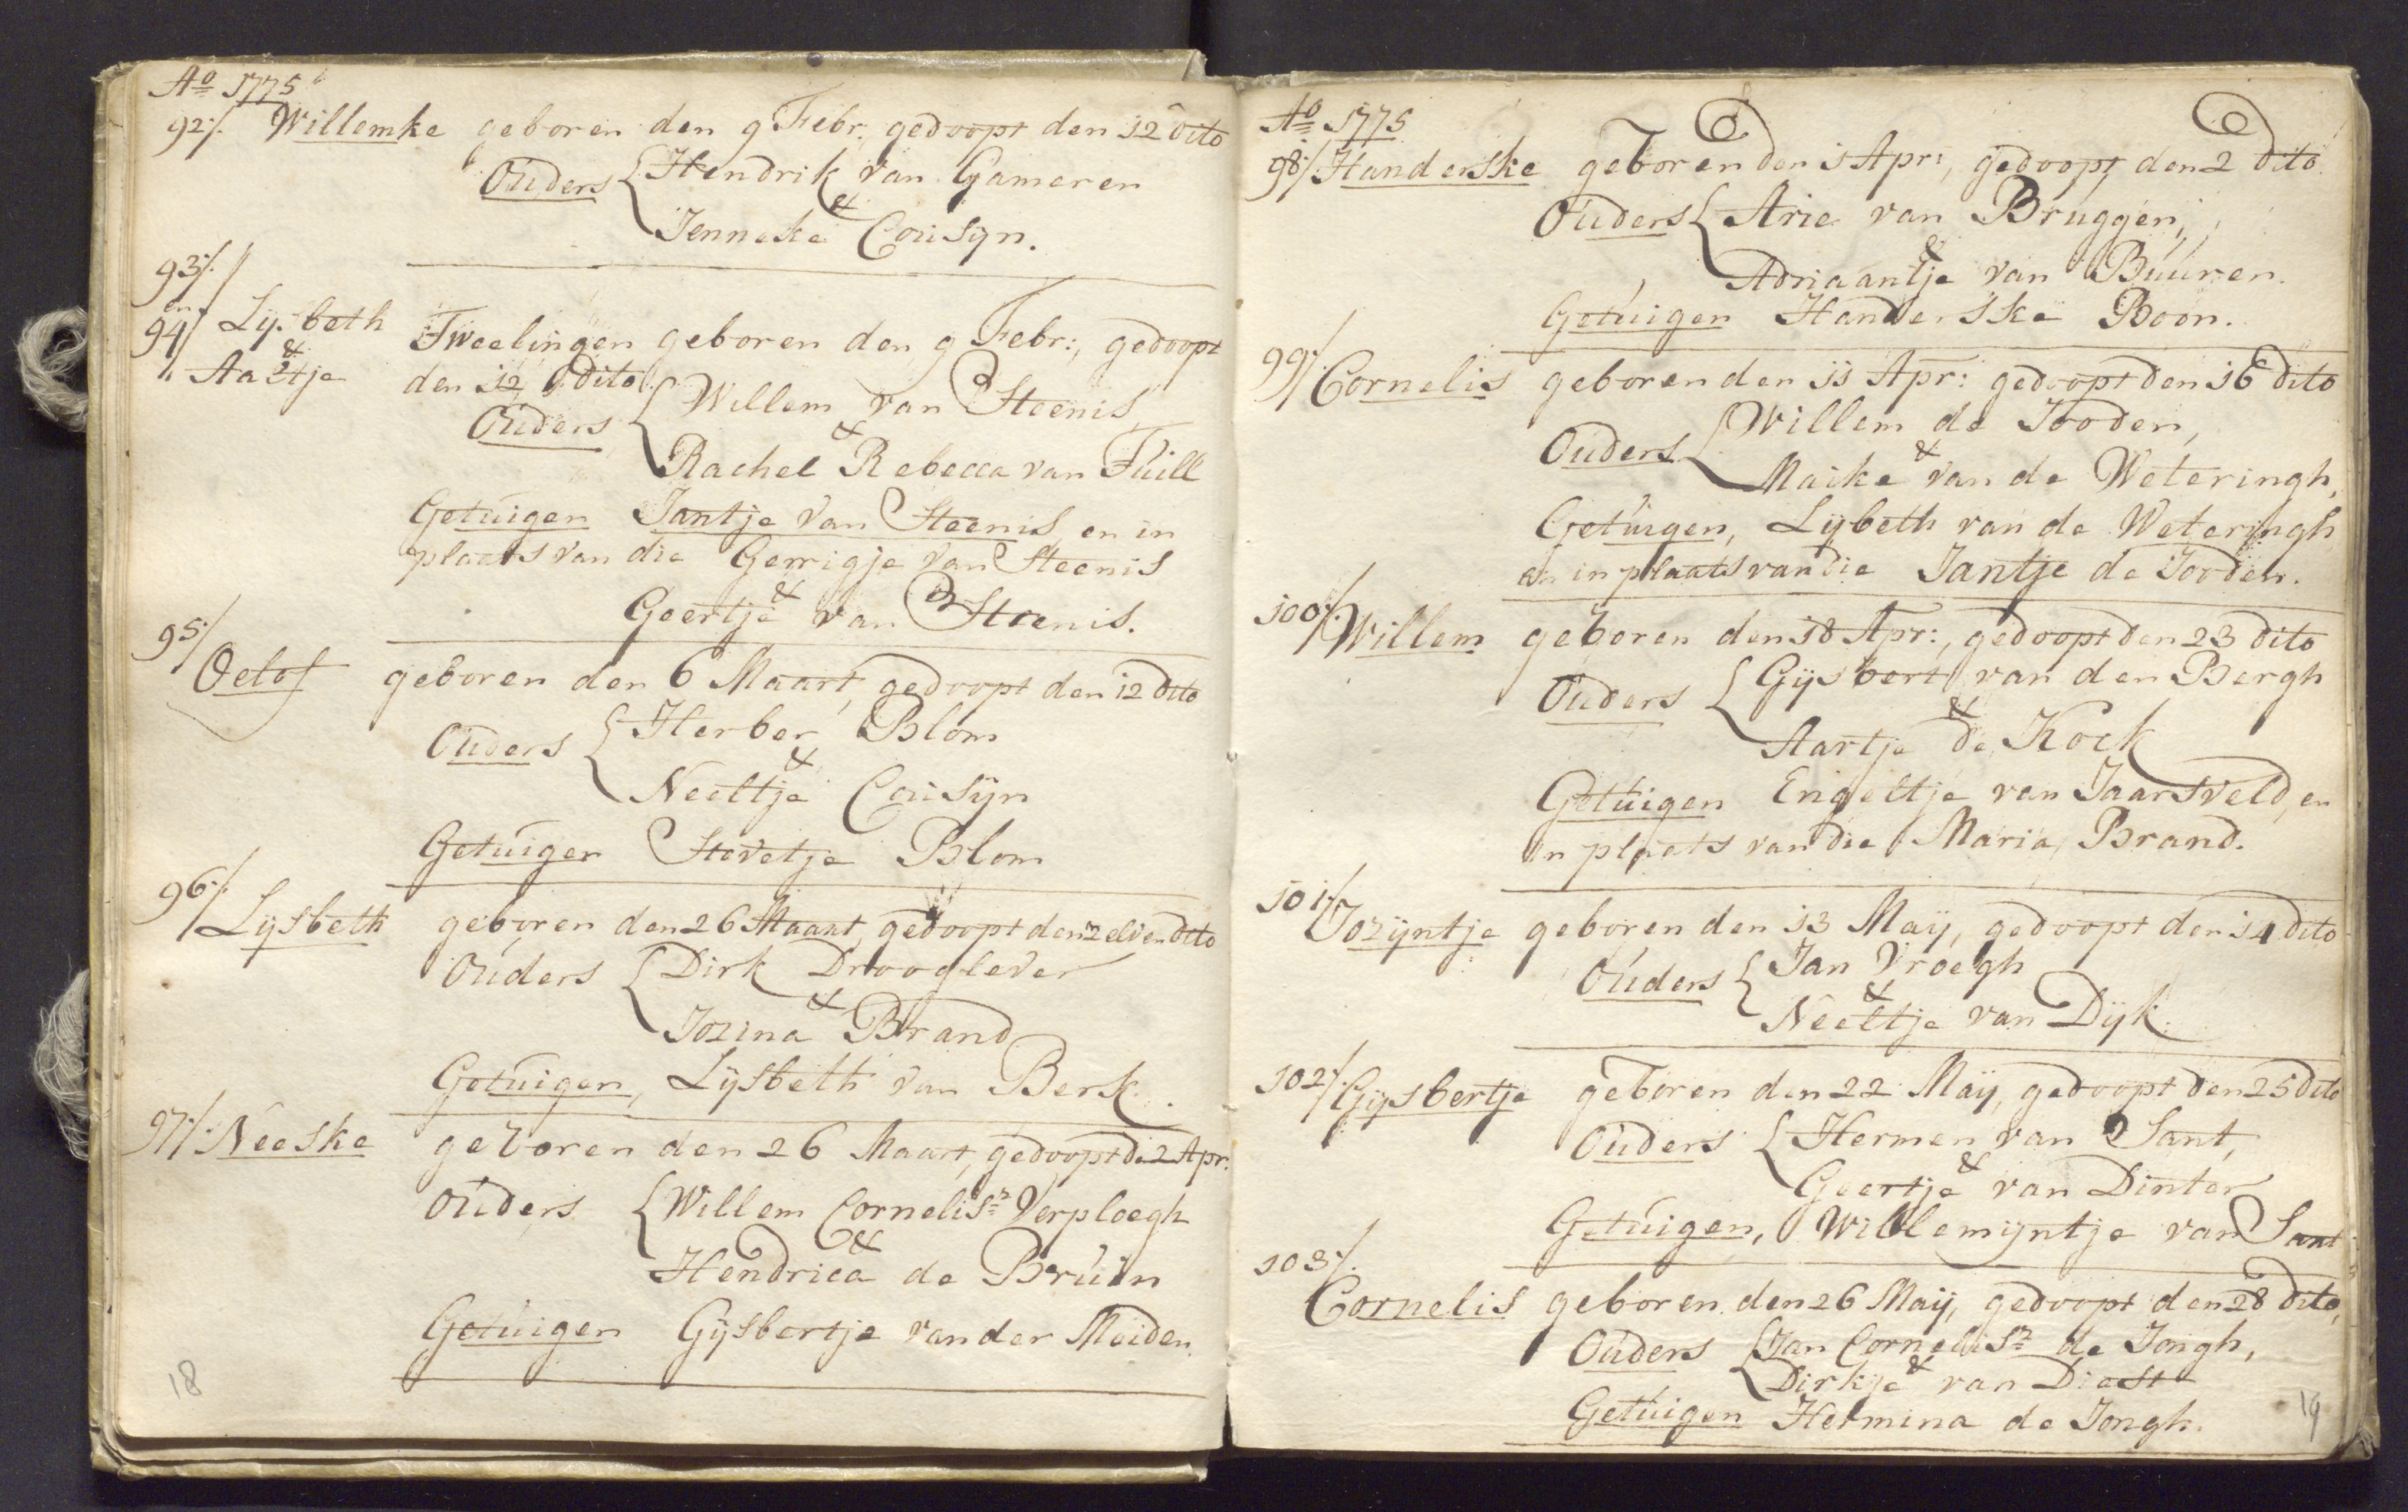 Aº 1775
92/. Willemke geboren den 9 Febr: gedoopt den 12 dito
Ouders { Hendrik van Gameren
&
Jenneke Cousijn.
93/.
en
94/ Lijsbeth
&
Aaltje
Tweelingen geboren den 9 Febr:, gedoopt
den 12 dito
Ouders { Willem van Steenis
&
Rachel Rebecca van Tuill
Getuigen Jantje van Steenis en in
plaats van die Gerrigje van Steenis
&
Geertje van Steenis.
95/ Oelof geboren den 6 Maart, gedoopt den 12 dito
Ouders { Herber Blom
&
Neeltje Cousijn
Getuigen Stevetje Blom
96/. Lijsbeth geboren den 26 Maart, gedoopt den zelven dito
Ouders { Dirk Drooglever
&
Jozina Brand
Getuigen, Lijsbeth van Berk.
97/. Neeske geboren den 26 Maart, gedoopt d. 2 Apr:
Ouders { Willem Cornelisz Verploegh
&
Hendrica de Bruin
Getuigen Gijsbertje van der Meiden.
18
Aº 1775
98/. Handerske geboren den 1 Apr:, gedoopt den 2 dito
Ouders { Arie van Bruggen,
&
Adriaantje van Buuren.
Getuigen Handerske Boon.
99/. Cornelis geboren den 11 Apr: gedoopt den 16 dito
Ouders { Willem de Jooden,
&
Maike van de Weteringh,
Getuigen, Lijbeth van de Weteringh
en in plaats van die Jantje de Jooden.
100/. Willem geboren den 18 Apr:, gedoopt den 23 dito
Ouders { Gijsbert van den Bergh
&
Aartje de Kock
Getuigen Engeltje van Jaarsveld, en
in plaats van die Maria Brand.
101/. Jozijntje geboren den 13 Maij, gedoopt den 14 dito
Ouders { Jan Vroegh
&
Neeltje van Dijk.
102/. Gijsbertje geboren den 22 Maij, gedoopt den 25 dito
Ouders { Hermen van Sant,
&
Geertje van Dinter
Getuigen, Willemijntje van Sant
103/.
Cornelis geboren den 26 Maij, gedoopt den 28 dito,
Ouders { Jan Cornelisz de Jongh,
&
Dirkje van Diest
Getuigen Hermina de Jongh.
19